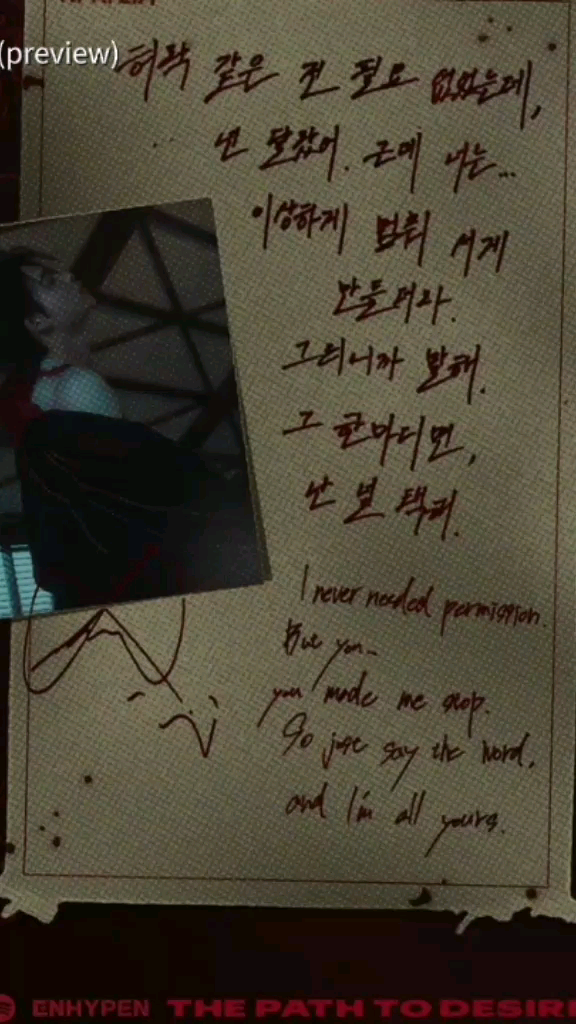 (preview)
허락 같은 건 필요 없었는데,
넌 달랐어. 근데 너는...
이상하게 멈춰 서게
만들더라.
그러니까 말해.
그 한마디면,
난 널 택해.
I never needed permission.
But you..
you made me stop.
So just say the word,
and I'm all yours.
ENHYPEN THE PATH TO DESIRE